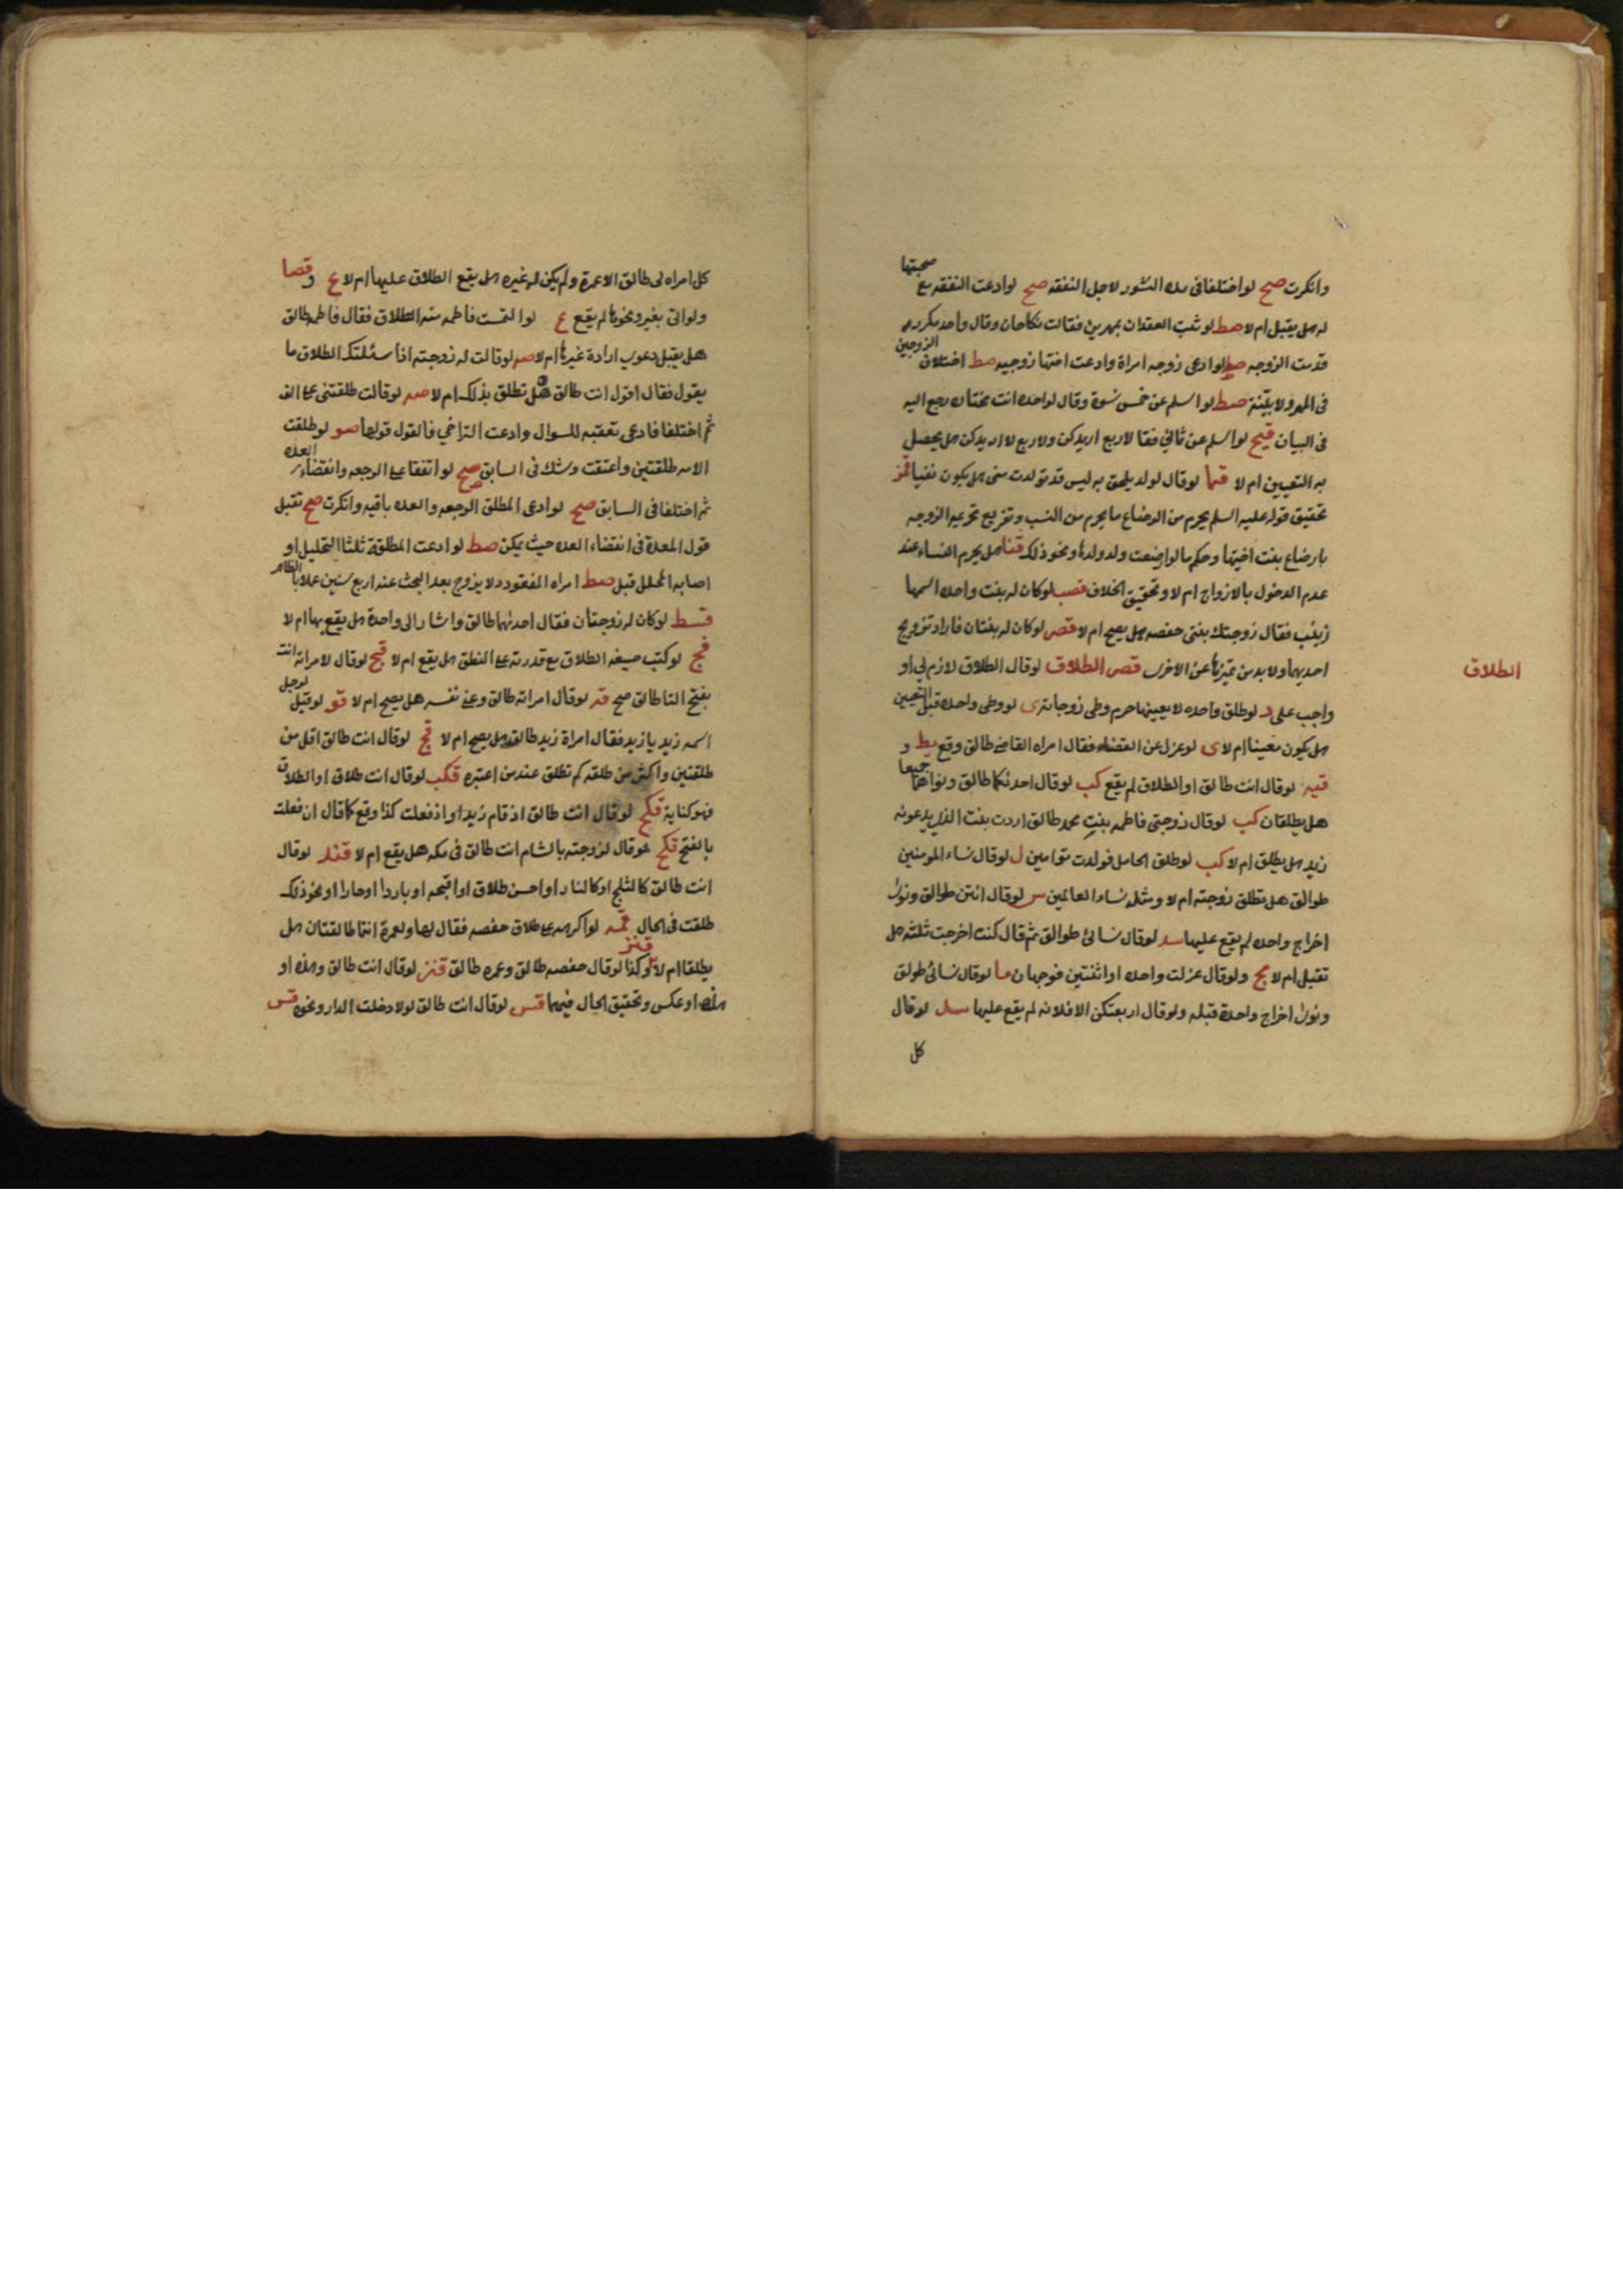 وانكرت صح لو اختلفا فى مدة النشوز لاجل النفقه صح لو ادعت النفقه مع صحبتها
له هل يقبل ام لا صط لو ثبت العقدان بمهرين فقالت نكاحان وقال واحد مكرر
قدمت الزوجه لو ادعى زوجه امراة وادعت اختها زوجيه صط اختلاف الزوجين
فى المهر ولا بيّنة صط لو اسلم عن خمس نسوة وقال لواحده انت مختاره رجع اليه
فى البيان قيح لو اسلم عن ثمانى فقا لاربع اريدكن ولاربع لا اريدكن هل يحصل
به التعيين ام لا قما لو قال لولد يلحق به ليس قد تولدت منى هل يكون نفيا قمز
تحقيق قوله عليه السلم يحرم من الرضاع ما يحرم من النسب وتفريع تحريم الزوجه
بارضاع بنت اخيها وحكم ما لو ارضعت ولد ولدها ونحو ذلك قنا هل يحرم النساء عند
عدم الدخول بالازواج ام لا وتحقيق الخلاف قصب لو كان له بنت واحده اسمها
زينب فقال زوجتك بنتى حفصه هل يصح ام لا قص لو كان له بنتان فاراد تزويج
احديهما ولا بد من تميزها عن الاخرى قص الطلاق لو قال الطلاق لازم لى او
الطلاق
واجب على د لو طلق واحده لا بعينها حرم وطى زوجاته ى لو وطى واحده قبل التعيين
هل يكون معينا ام لا ى لو عزل عن القضاء فقال امراه القاضى طالق وقع يط و
قيه لو قال انت طالق او الطلاق لم يقع كب لو قال احدكما طالق ونواهما جميعا
هل يطلقان كب لو قال زوجتى فاطمه بنت محمد طالق اردت بنت الذى يدعونه
زيد هل يطلق ام لا كب لو طلق الحامل فولدت توامين ل لو قال نساء المومنين
طوالق هل تطلق زوجته ام لا ومثله نساء العالمين س لو قال انتن طوالق ونوى
اخراج واحده لم يقع عليها سد لو قال نسائى طوالق ثم قال كنت اخرجت ثلثه هل
تقبل ام لا مح ولو قال عزلت واحده او اثنتين فوجهان ما لو قال نسائى طولق
ونوى اخراج واحدة قبله ولو قال اربعتكن الا فلانه لم يقع عليها سد لو قال
كل
كل امراه لى طالق الا عمرة ولم يكن له غيره هل يقع الطلاق عليها ام لا ع وقصا
ولو اتى بغير ونحوها لم يقع ع لو التمست فاطمه منه الطلاق فقال فاطمه طالق
هل يقبل دعوى ارادة غيرها ام لا صه لو قالت له زوجته اذا سئلتك الطلاق ما
يقول فقال اقول انت طالق هل تطلق بذلك ام لا صه لو قالت طلقتنى على الف
ثم اختلفا فادعى تعقبه للسوال وادعت التراخي فالقول قولها صو لو طلقت
الامه طلقتين واعتقت وشك فى السابق صح لو اتفقا على الرجعه وانقضاء العده
ثم اختلفا فى السابق صح لو ادعى المطلق الرجعه والعده باقيه وانكرت صح تقبل
قول المعدة فى انقضاء العده حيث يمكن صط لو ادعت المطلقة ثلثا التحليل او
اصابه المحلل قبل صط امراه المفقود لا يزوج بعد البحث عنه اربع سنين عملا بالظاهر
قسط لو كان له زوجتان فقال احدنهما طالق واشار الى واحدة هل يقع بها ام لا
قج لو كتب صيغه الطلاق مع قدرته على النطق هل يقع ام لا قيح لو قال لامراته انت
بفتح التا طالق صح قه لو قال امراته طالق وعنى نفسه هل يصح ام لا قو لو قيل لرجل
اسمه زيد يا زيد فقال امراة زيد طالق هل يصح ام لا قح لو قال انت طالق اقل من
طلقتين واكثر من طلقه كم تطلق عند من اعتبره قكب لو قال انت طلاق او الطلاق
فهو كناية قكح لو قال انت طالق اذ قام زيد او اذ فعلت كذا وقع كما قال ان فعلت
بالفتح قكح لو قال لزوجته بالشام انت طالق فى مكه هل يقع ام لا قند لو قال
انت طالق كالثلج او كالنار او احسن طلاق او اقبحه او باردا او حارا او نحو ذلك
طلقت فى الحال قمه لو اكرهه على طلاق حفصه فقال لها ولعمرة انتما طالقتان هل
يطلقا ام لا وكذا لو قال حفصه طالق وعمره طالق قنز لو قال انت طالق وهذه او
هذه او عكس وتحقيق الحال فيهما قس لو قال انت طالق لولا دخلت الدار ونحوه قس